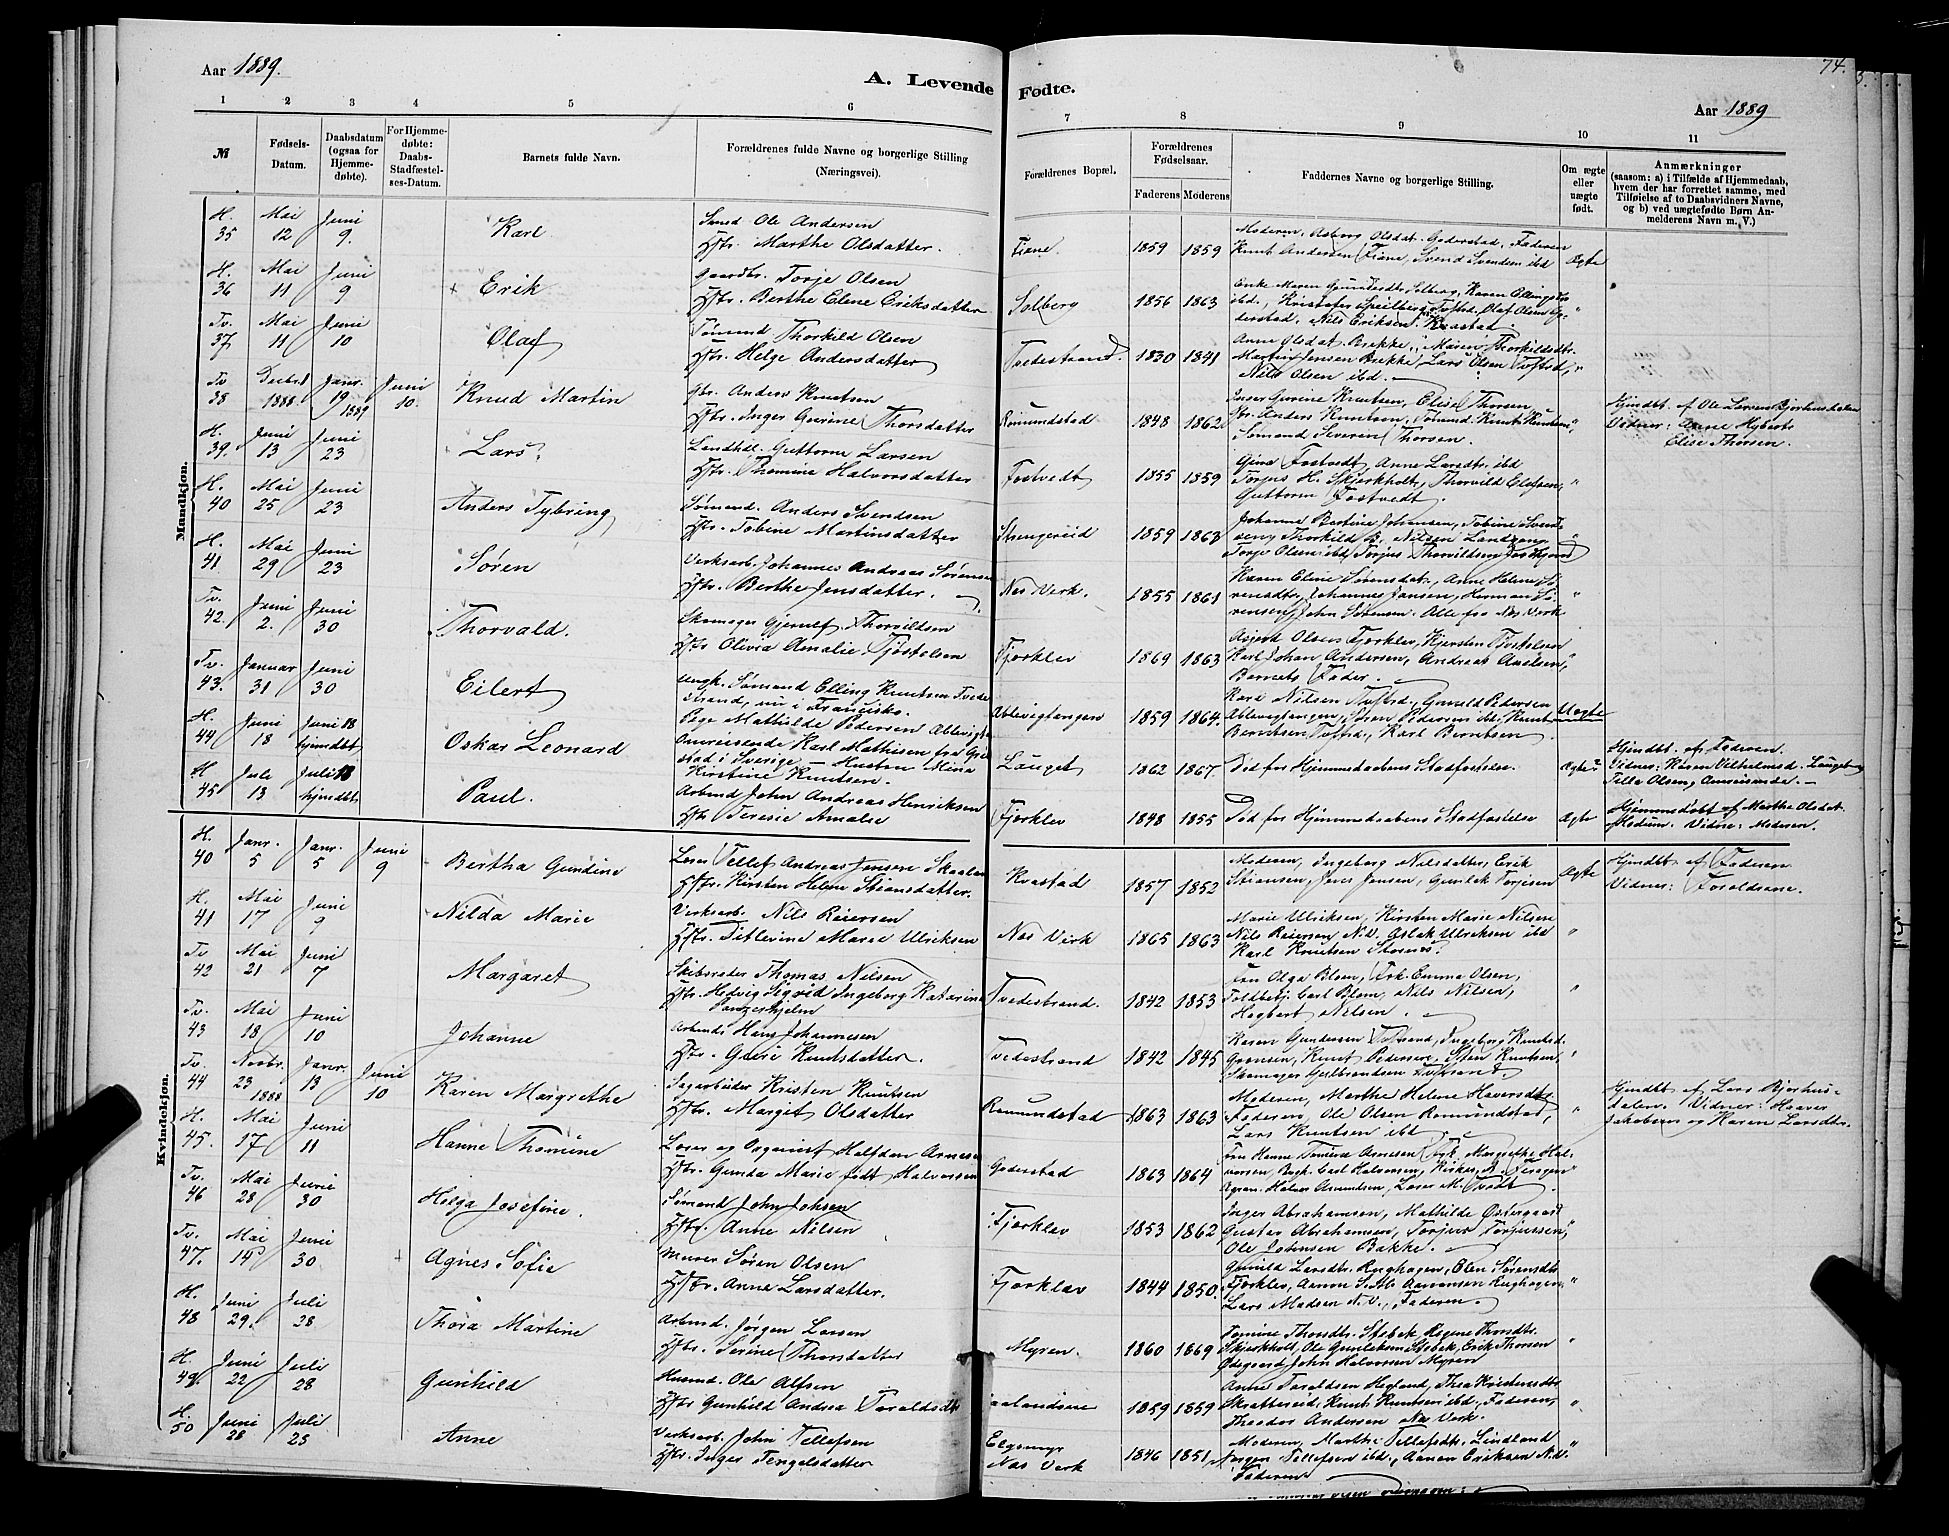 Aar 1889.
A. Levende Fødte.
74.
Aar 1889
1 2 3 4 5 6 7 8 9 10 11
№
Fødsels-Datum.
Daabsdatum (ogsaa for Hjemmedøbte).
For Hjemmedøbte: Daabs-Stadfæstelses-Datum.
Barnets fulde Navn.
Forældrenes fulde Navne og borgerlige Stilling (Næringsvei).
Forældrenes Bopæl.
Forældrenes Fødselsaar.
Faderens Moderens
Faddernes Navne og borgerlige Stilling.
Om ægte eller uægte født.
Anmærkninger
(saasom: a) i Tilfælde af Hjemmedaab, hvem der har forrettet samme, med Tilføielse af to Daabsvidners Navne, og b) ved uægtefødte Børn Anmelderens Navn m. V.)
Mandkjøn.
H. 35 Mai 12 Juni 9. Karl Smed Ole Andersen Hstr. Marthe Olsdatter. Fiane 1859 1859 Moderen, Asberg Olsdat. Goderstad, Faderen Knut Andersen Fiane, Svend Svendsen ibd Ægte
H. 36 Mai 11 Juni 9 Erik Gaardbr. Torje Olsen Hstr. Berthe Elene Eriksdatter Solberg 1856 1863 "
Tv. 37 Mai 11 Juni 10 Olaf Sømand Thorkild Olsen Hstr. Helge Andersdatter Tvedestrand. 1830 1841 Anne Olsdat. Bakke, Maren Thorkildsdtr. Martin Jensen Bakke, Lars Olsen Tofsd, Nils Olsen ibd. "
Tv 38 Decbr. 1888. Janr. 19 1889 Juni 10. Knud Martin Gbr. Anders Knutsen Hstr. Inger Gurine Thorsdatter Romundstad 1848 1862 Inger Gurine Knutsen, Elise Thorsen, Gbr. Anders Knutsen, Sømand Knut Knutsen, Sømand Severin Thorsen. " Hjmdbt. af Ole Larsen Bjorhusdalen Vidner: Anne Nyberto Elise Thorsen.
H. 39. Juni 13 Juni 23 Lars. Landhdl. Guttorm Larsen Hstr. Thomine Halvorsdatter Fostvedt 1855 1859 Gina Fostvedt, Anne Larsdtr. ibd Torjus H. Skjerkholt, Thorvild Olafsen, Guttorm Fostvedt. "
H. 40 Mai 25 Juni 23 Anders Tybring Sømand. Anders Svendsen Hstr. Tobine Martinsdatter Strengereid 1859 1863 "
H. 41 Mai 29 Juni 23 Søren Verksarb. Johannes Andreas Sørensen Hstr. Berthe Jensdatter. Nes Verk. 1855 1861 Karen Elene Sørensdat., Anne Helene Sørensdtr, Johannes Jansen, Herman Sørensen, John Sørensen. Alle fra Nes Verk "
Tv. 42. Juni 2. Juni 30 Thorvald. Skomager Gjerulf Thorvildsen Hstr Olivia Amalie Tjøstelsen Fjærklev 1869 1863 Karl Johan Andersen, Andreas Axelsen, Barnets Fader. "
Tv. 43. Januar 31 Juni 30 Eilert Ungk. Sømand Elling Knutsen Tvedestrand, nu i Francisko. Pige Mathilde Pedersen Ablevigt Ablevigtangen 1859 1864. Kare Nilsen Tofsd., Gunild Pedersen Ablevigtangen, Søren Pedersen ibd, Knut Berntsen Tofsd., Karl Berntsen. Uægte
H. 44 Juni 18 Juni 18 hjmdbt Oskar Leonard Omreisende Karl Mathisen fra Ystad i Sverige — Hustru Mina Kirstine Knutsen. Lauget 1862 1867. Død før Hjemmedaabens Stadfæstelse. Ægte Hjmdbt. af Faderen. Vidner: Karen Vilhelmsd. Laugeby Tilla Olsen, Omreisende. —
H 45. Juli 13 Juli 18 hjmdbt Paul. Arbmd John Andreas Henriksen Hstr Teresie Amalse Fjærklev 1848 1855 Død før Hjemmedaabens Stadfæstelse Ægte Hjemmedøbt af Marthe Olsdat. Modum. Vidne: Moderen.
Kvindekjøn.
H. 40 Janr. 5 Janr. 5 Juni 9 Bertha Gundine Losen Tellef Andreas Jensen Skaalen Hstr. Kirsten Helene Stiansdatter. Kvastad 1857 1852 Moderen, Ingeborg Nilsdatter, Erik Stiansen, Jens Jensen, Gunlek Torjesen Ægte Hjmdbt af Faderen Vidner: Forældrene.
H. 41 Mai 17 Juni 9 Nilda Marie Verksarb. Nils Reiersen Hstr. Titlevine Marie Ulriksen Nes Verk 1865 1863 Marie Ulriksen, Kirsten Marie Nilsen Nils Reiersen N.V. Aslak Ulriksen ibd Karl Knutsen "
Tv 42 Mai 21 Juni 7 Margaret Skibsreder Thomas Nilsen Hstr. Hedvig Sigvid Ingeborg Katarine Tvedestrand. 1842 1853 Fru Olga Blom, Frk. Emma Olsen, Toldbetj. Carl Blom, Nils Nilsen, Hagbart Nilsen. "
Tv. 43 Mai 18 Juni 10 Johanne Arbmd. Hans Johannesen Hstr. Gusie Knutsdatter. Tvedestrand 1842 1845 "
Tv. 44 Novbr. 23 1888 Janr. 13 Juni 10 Karen Margrethe Sagarbeider Kristen Knutsen Hstr. Margit Olsdatter Romundstad 1863 1863 Moderen, Marthe Helene Haversdtr Faderen, Ole Olsen Romundstad, Lars Knutsen ibd " Hjmdbt af Lars Bjorhusdalen. Vidner: Haaver Jakobsen og Karen Larsdtr.
H. 45. Mai 17 Juni 11 Hanne Thomine Lærer og Organist Halfdan Arnesen Hstr. Gunda Marie født Halvorsen Goderstad 1863 1864 "
Tv. 46 Mai 28 Juni 30 Helga Josefine. Sømand John Johsen Hstr. Anne Nilsen Fjærklev 1853 1862 Inger Abrahamsen, Mathilde Østergaard Gustav Abrahamsen, Torjus Torjussen, Ole Johnsen Bakke. "
Tv. 47. Mai 14 Juni 30 Agnes Sofie Murer Søren Olsen Hstr. Anne Larsdatter. Fjærklev 1844 1850. Gunild Larsdtr. Rughagen, Elen Sørensdtr Fjærklev, Lars Madsen N.V., Faderen. "
H. 48 Juni 29. Juli 28 Thora Martine Arbmd. Jørgen Larsen Hstr. Serine Thorsdatter Myren. 1860 1869 Tomine Thorsdtr. Stebek, Ragne Thorsdtr. Skjerkholt, Ole Gunleksen Stebek, Erik Thorsen Ødegaard, John Halvorsen Myren "
H. 49. Juni 22 Juli 28 Gunhild Husmd. Ole Alfsen Hstr Gunhild Andrea Toraldsdtr 1859 1859 Anne Toraldsen Hegland, Thea Kristensdtr Skrattereid, Knut Knutsen ibd, Faderen, Theodor Andersen Nes Verk. "
H. 50 Juni 28 Juli 28 Anne Verksarb. John Tellefsen Hstr. Inger Tengelsdatter Elgsmyr Nes Verk 1846 1851 Moderen, Marthe Tellefsdtr. Lindland Jørgen Tellefsen ibd., Aanon Eriksen N.V. Faderen "